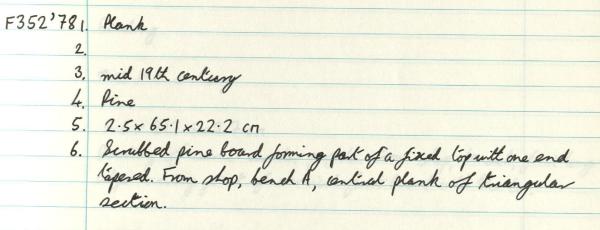 F352'78 1. Plank
2.
3. mid 19th century
4. Pine
5. 2.5 x 65.1 x 22.2 cm
6. Scrubbed pine board forming part of a fixed top with one end
tapered. From shop, bench A, central plank of triangular
section.